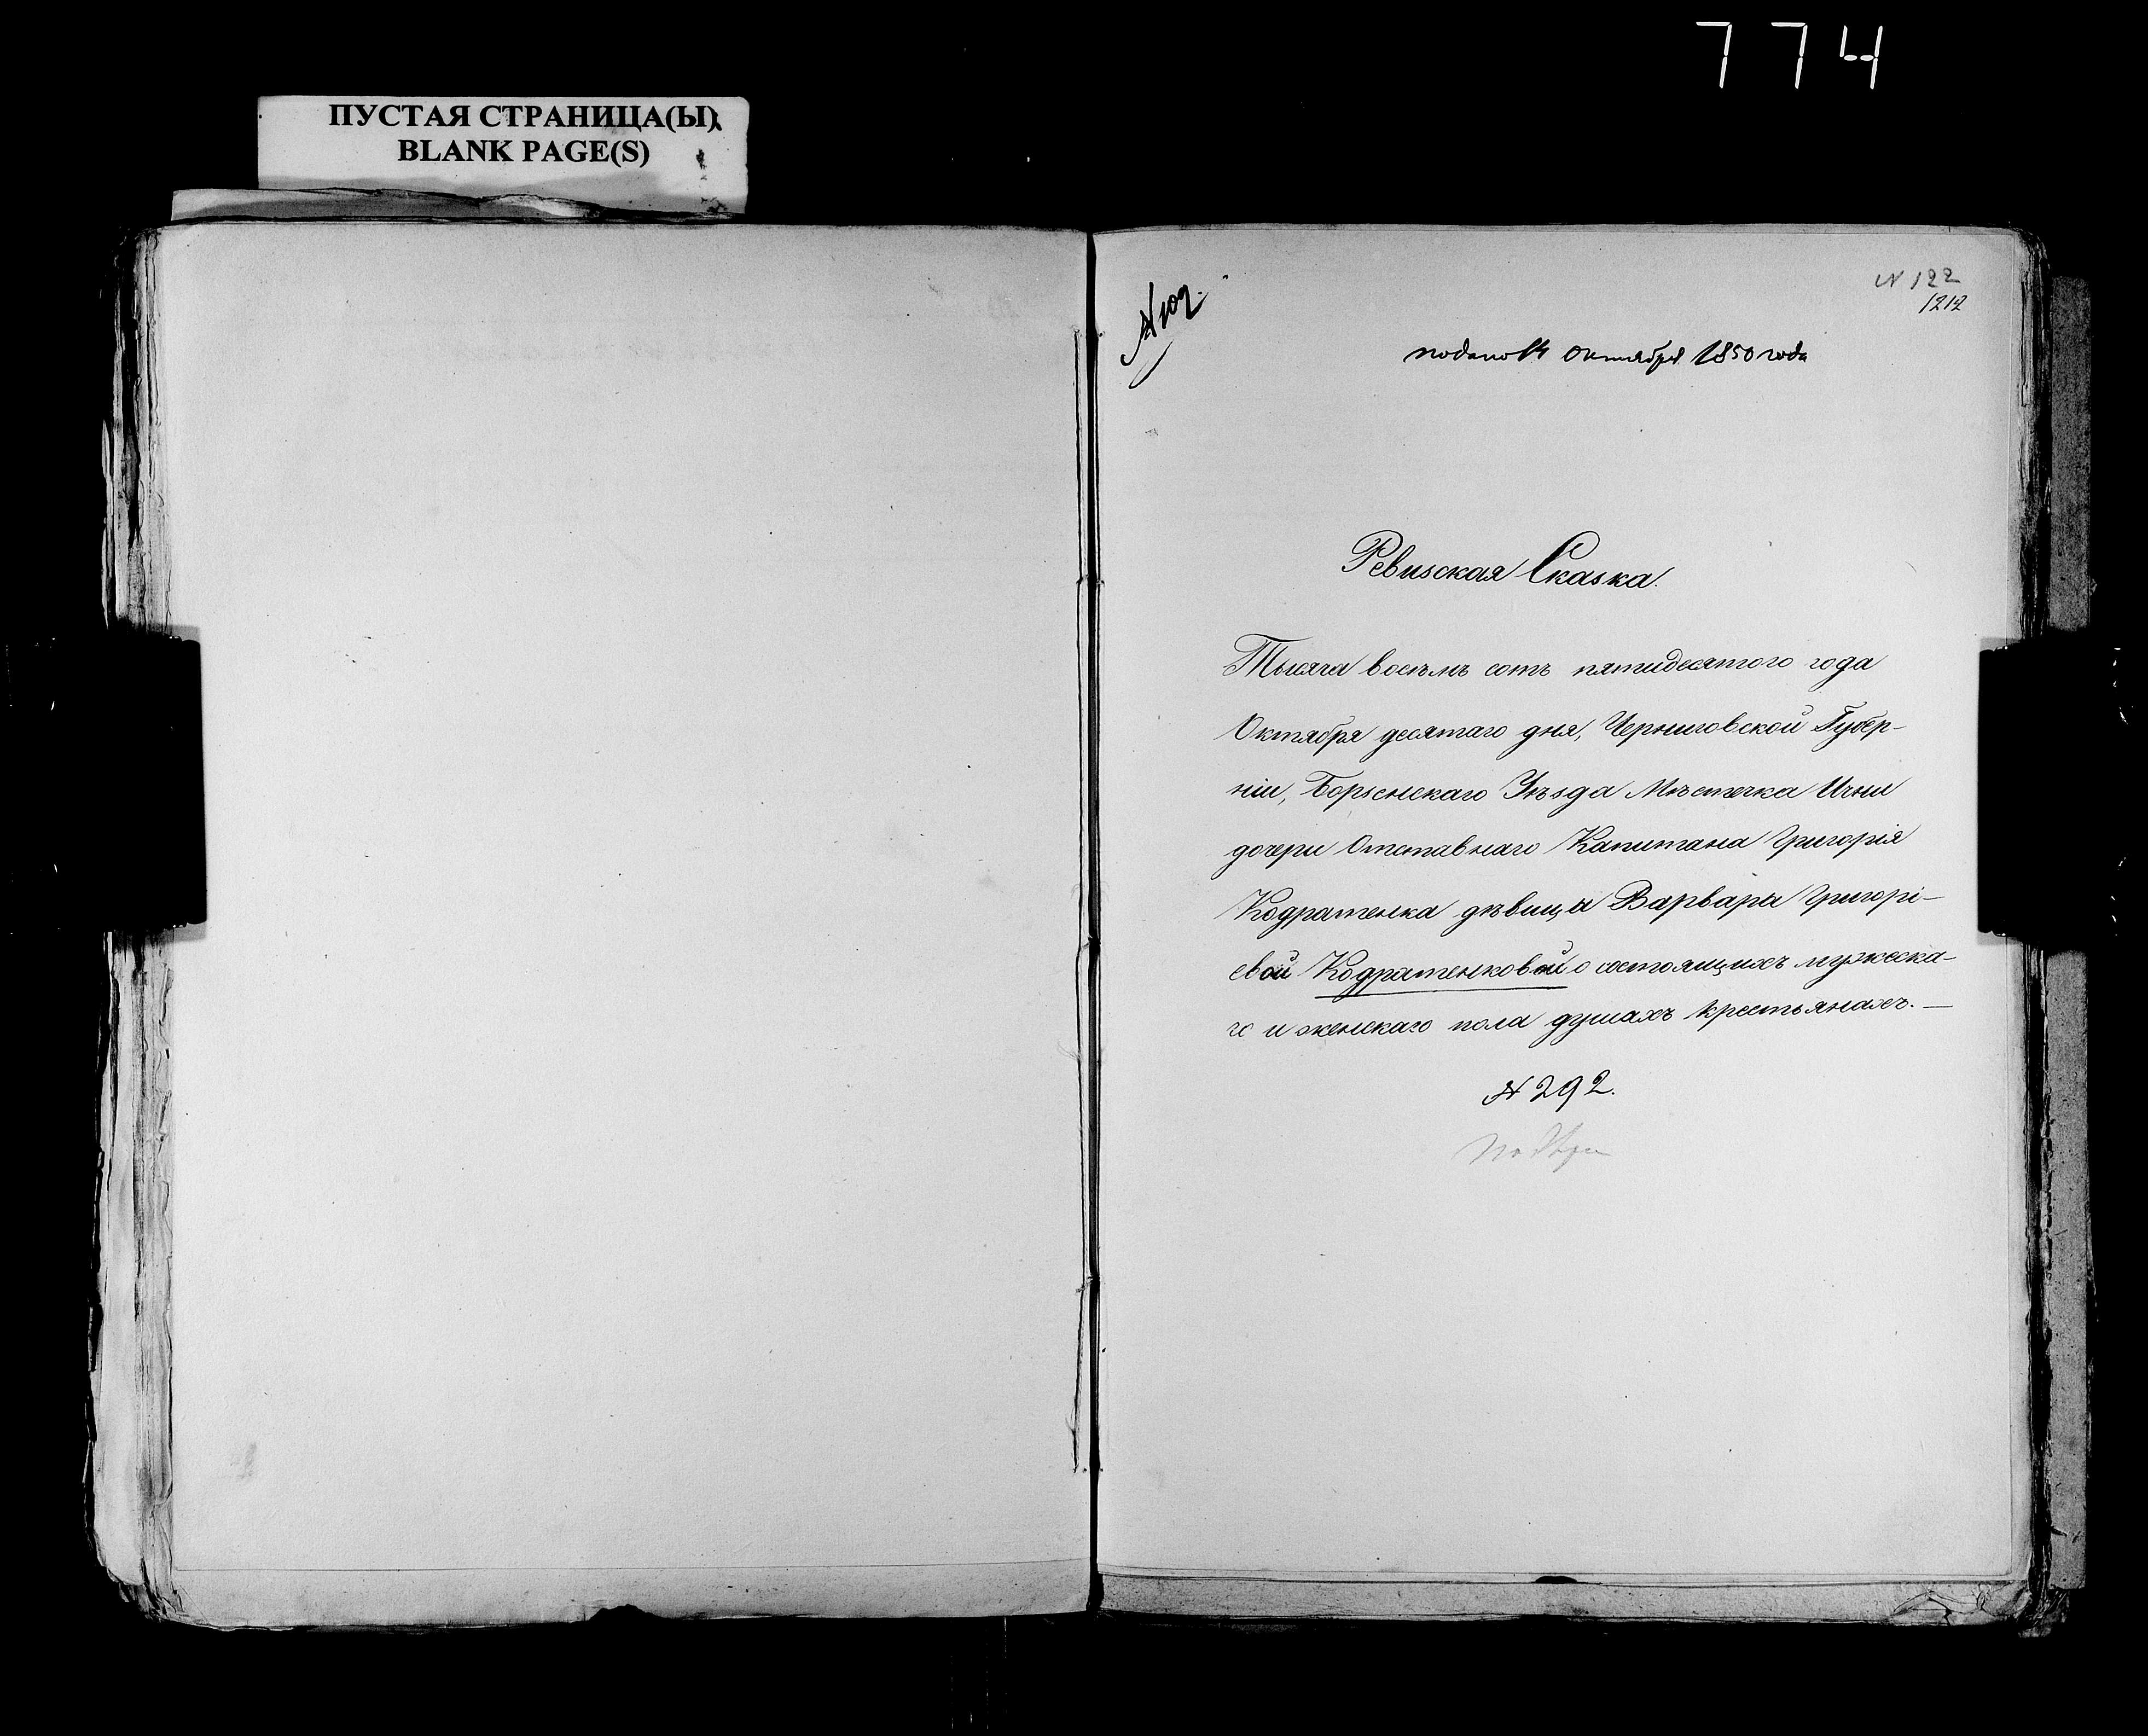 774
ПУСТАЯ СТРАНИЦА(Ы)
BLANK PAGE(S)
№ 122
1212
№ 109.
подано 14 Октября 1850 года
Ревизская Сказка.
Тысяча восѣмъ сотъ пятидесятого года
Октября десятаго дня, Черниговской Губер-
ніи, Борзенскаго Уѣзда Мѣстечка Ични
дочери Отставнаго Капитана Григорія
Кодратенка дѣвицы Варвары Григорі-
евой Кодратенковой о состоящихъ мужеска-
го и женскаго пола душахъ крестьянахъ.—
№ 292.